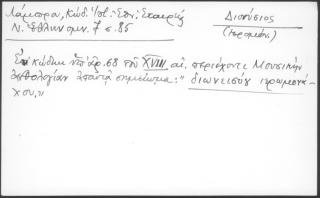 Λάμπρου, Κώδ. Ἱστ. Ἐθν. Ἑταιρείας
Ν. Ἑλλην ομν. 7 σ. 85
Διονύσιος
(ἱερομόν.)
Ἐν κώδικι ὑπ' ἀρ. 68 τοῦ XVIII αἰ. περιέχοντι Μουσικὴν
ἀνθολογίαν ἀπαντᾷ σημείωμα: " διωνεισύου ιερωμονά-
χου,,